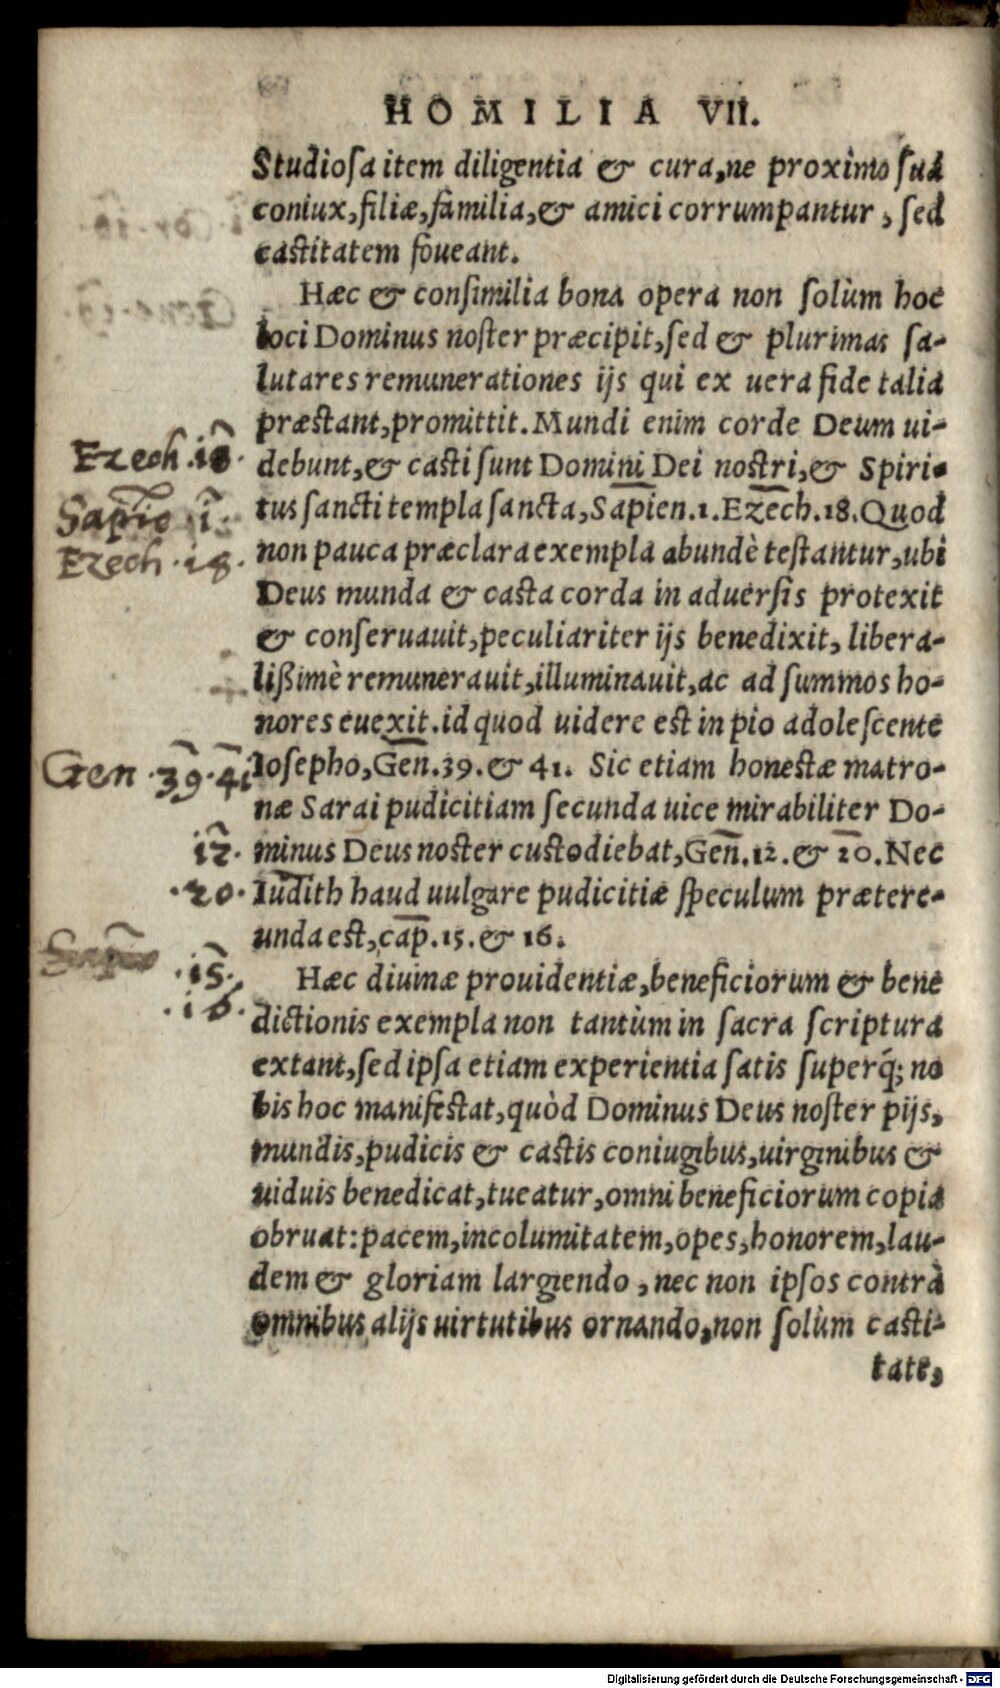 HOMILIA VII.
Studiosa item diligentia & cura, ne proximo sua
coniux, filiæ, familia, & amici corrumpantur, sed
castitatem foueant.
Hæc & consimilia bona opera non solùm hoc
loci Dominus noster præcipit, sed & plurimas sa-
lutares remunerationes ijs qui ex uera fide talia
præstant, promittit. Mundi enim corde Deum ui-
debunt, & casti sunt Domini Dei nostri, & Spiri-
tus sancti templa sancta, Sapien. 1. Ezech. 18. Quod
non pauca præclara exempla abundè testantur, ubi
Deus munda & casta corda in aduersis protexit
& conseruauit, peculiariter ijs benedixit, libera-
lißimè remunerauit, illuminauit, ac ad summos ho-
nores euexit. id quod uidere est in pio adolescente
Iosepho, Gen. 39. & 41. Sic etiam honestæ matro-
næ Sarai pudicitiam secunda uice mirabiliter Do-
minus Deus noster custodiebat, Gen. 12. & 20. Nec
Iudith haud uulgare pudicitiæ speculum prætere-
unda est, cap. 15. & 16.
Hæc diuinæ prouidentiæ, beneficiorum & bene
dictionis exempla non tantùm in sacra scriptura
extant, sed ipsa etiam experientia satis superq́; no
bis hoc manifestat, quòd Dominus Deus noster pijs,
mundis, pudicis & castis coniugibus, uirginibus &
uiduis benedicat, tueatur, omni beneficiorum copia
obruat: pacem, incolumitatem, opes, honorem, lau-
dem & gloriam largiendo, nec non ipsos contrà
omnibus alijs uirtutibus ornando, non solùm casti-
tate,
Ezech. 18.
Sapie 1.
Ezech. 18.
Gen. 39. 41
12.
.20.
.15.
.16.
Digitalisierung gefördert durch die Deutsche Forschungsgemeinschaft - DFG